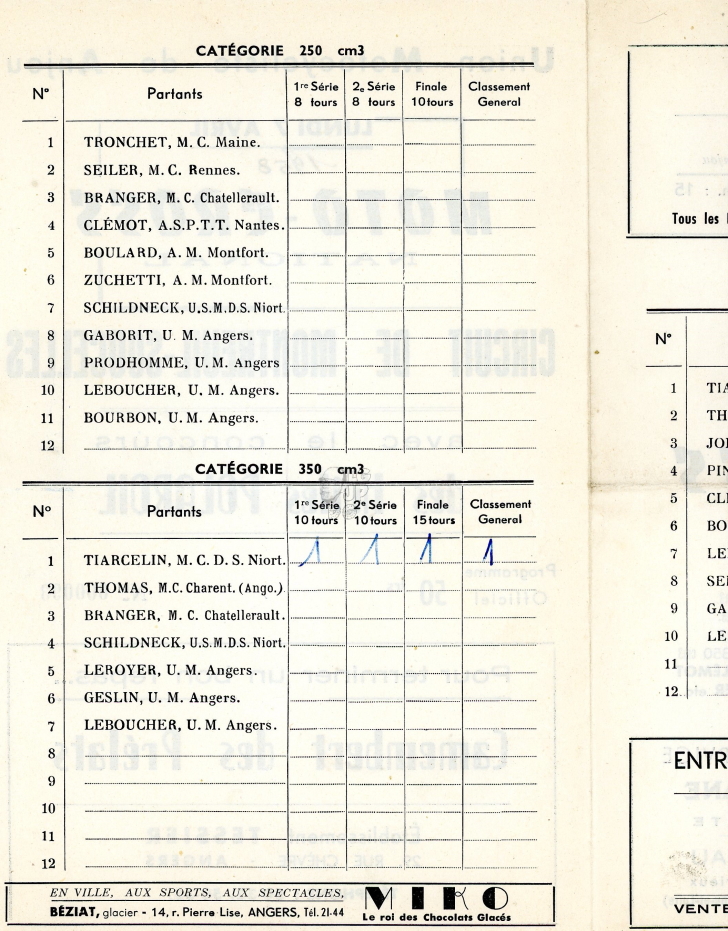 CATÉGORIE 250 cm3
N° Partants 1re Série 8 tours 2e Série 8 tours Finale 10 tours Classement General
1 TRONCHET, M. C. Maine.
2 SEILER, M. C. Rennes.
3 BRANGER, M. C. Chatellerault.
4 CLÉMOT, A.S.P.T.T. Nantes.
5 BOULARD, A. M. Montfort.
6 ZUCHETTI, A. M. Montfort.
7 SCHILDNECK, U.S.M.D.S. Niort.
8 GABORIT, U. M. Angers.
9 PRODHOMME, U. M. Angers
10 LEBOUCHER, U. M. Angers.
11 BOURBON, U. M. Angers.
12
CATÉGORIE 350 cm3
N° Partants 1re Série 10 tours 2e Série 10 tours Finale 15 tours Classement General
1 TIARCELIN, M. C. D. S. Niort. 1 1 1 1
2 THOMAS, M.C. Charent. (Ango.)
3 BRANGER, M. C. Chatellerault.
4 SCHILDNECK, U.S.M.D.S. Niort.
5 LEROYER, U. M. Angers.
6 GESLIN, U. M. Angers.
7 LEBOUCHER, U. M. Angers.
8
9
10
11
12
EN VILLE, AUX SPORTS, AUX SPECTACLES,
BÉZIAT, glacier - 14, r. Pierre Lise, ANGERS, Tél. 21-44
MIKO
Le roi des Chocolats Glacés
Tous les
N°
1 TIA
2 TH
3 JO
4 PIN
5 CL
6 BO
7 LE
8 SE
9 GA
10 LE
11
12
ENTR
VENTE